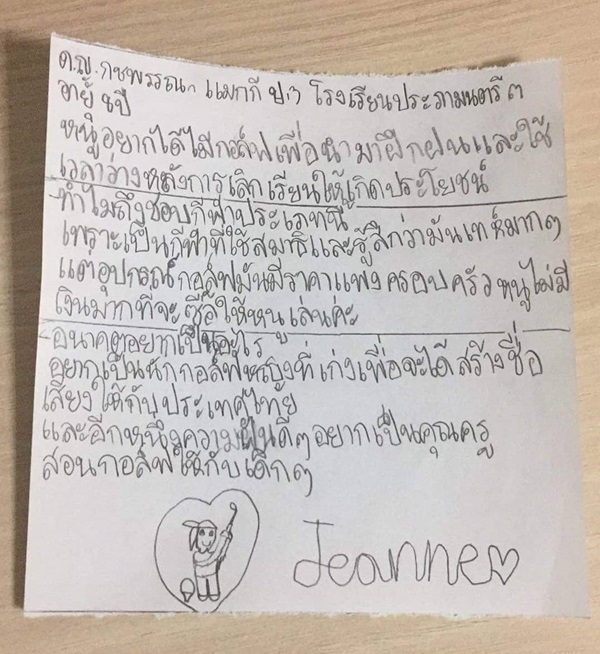 ด.ญ. กชพรรณ แมกกี ป.3 โรงเรียนประภามนตรี ๓
อายุ 8ปี
หนูอยากได้ไม้กอล์ฟเพื่อนำมาฝึกฝนและใช้
เวลาว่างหลังการเลิกเรียนให้เกิดประโยชน์
ทำไมถึงชอบกีฬาประเภทนี้
เพราะเป็นกีฬาที่ใช้สมาธิและรู้สึกว่ามันเท่ห์มากๆ
แต่อุปกรณ์กอล์ฟมันมีราคาแพงครอบครัวหนูไม่มี
เงินมากที่จะซื้อให้หนูเล่นค่ะ
อนาคตอยากเป็นอะไร
อยากเป็นนักกอล์ฟหญิงที่เก่งเพื่อจะได้สร้างชื่อ
เสียงให้กับประเทศไทย
และอีกหนึ่งความฝันดีๆอยากเป็นคุณครู
สอนกอล์ฟให้กับเด็กๆ
Jeanne